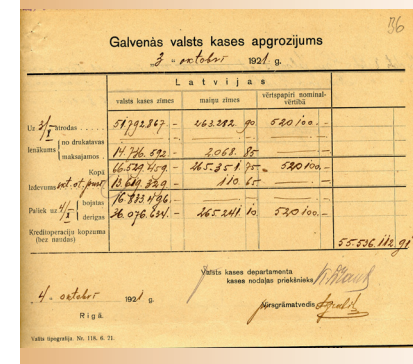 36
Galvenās valsts kases apgrozijums
3. oktobrī 1921 g.
Latvijas
valsts kases zimes maiņu zimes vērtspapiri nominalvērtibā
Uz 3/X atrodas 51.792.867.- 263.282 90 520100.-
Ienākums no drukatavas
maksajamos 14.736.592.- 2.068. 85
Kopā 66.529.459.- 265.351. 75 520100.-
Izdevums 13.619.329.- 110. 65
Paliek uz 4/X bojatas 16.833.496.-
derigas 36.076.634.- 265.241 10 520100.-
Kreditoperaciju kopzuma
(bez naudas) 55.536.112.91
Valsts kases departamenta
kases nodaļas priekšnieks
4. oktobrī 1921 g.
Rīgā.
Valsts tipografija. Nr. 118. 6. 21.